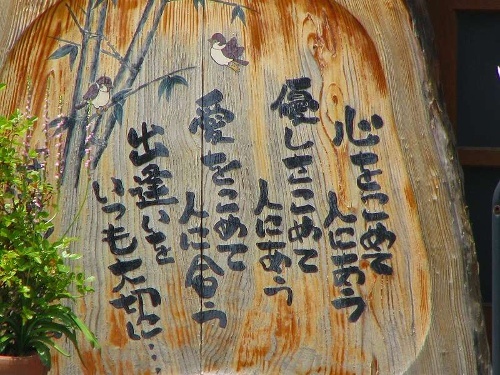 心をこめて
人にあう
優しさこめて
人にあう
愛をこめて
人に会う
出逢いを
いつも大切に…